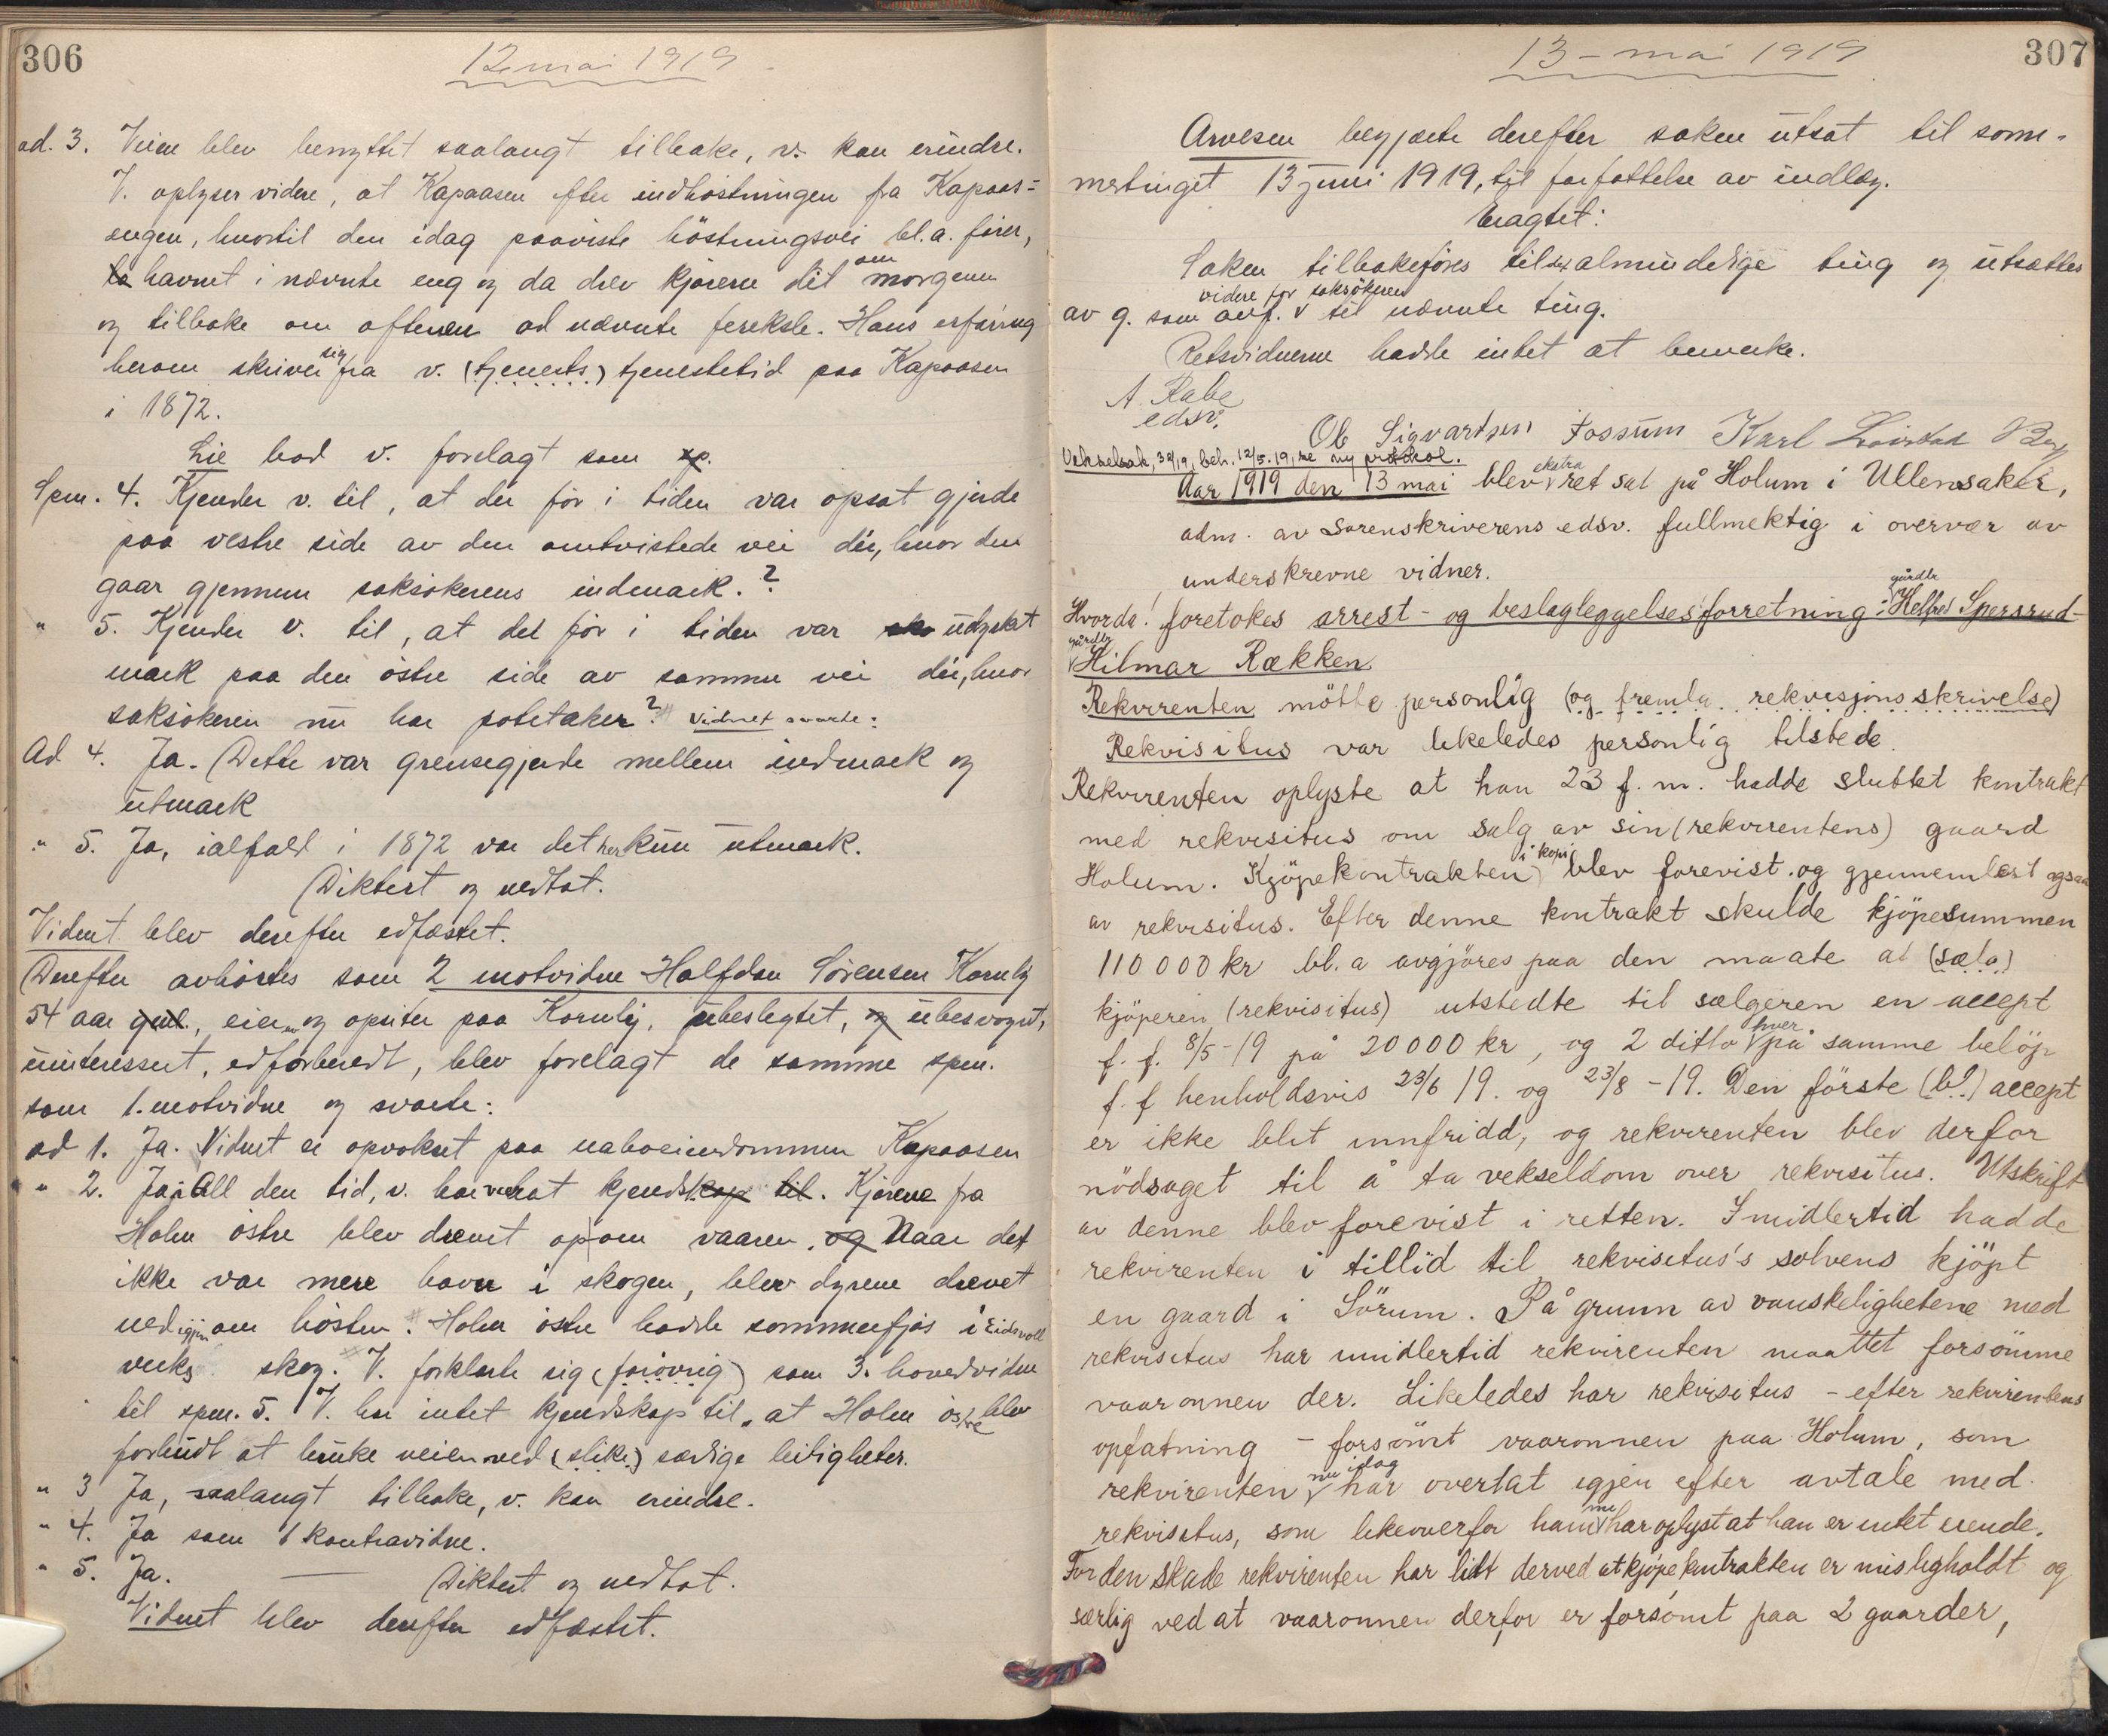 306
12 mai 1919
ad. 3. Veien blev benyttet saalangt tilbake, v. kan erindre.
V. oplyser videre, at Kapaasen efter indhøstningen fra Kapaas-
engen, hvortil den idag paaviste høstningsvei bl.a. fører,
havnet i nævnte eng og da drev kjørene dit om morgenen
og tilbake om aftenen ad nævnte fereksle. Hans erfaring
herom skriver sig fra v. (tjenests) tjenestetid paa Kapaasen
i 1872.
Lie bad v. forelagt som sp.
Spm. 4. Kjender v. til, at der før i tiden var opsat gjerde
paa vestre side av den omtvistede vei der, hvor den
gaar gjennem saksøkerens indmark.?
" 5. Kjender v. til, at det før i tiden var udyrket
mark paa den østre side av samme vei der, hvor
saksøkeren nu har potetaker? Vidnet svarte:
Ad 4. Ja. Dette var grensegjerde mellem indmark og
utmark
" 5. Ja, ialfald i 1872 var det her kun utmark.
Diktert og vedtat.
Vidnet blev derefter edfæstet.
Derefter avhørtes som 2 motvidne Halfdan Sørensen Kornlij
54 aar gml., eier og opsitter paa Kornlij, ubeslegtet, og ubesvogret,
uinteressert, edforberedt, blev forelagt de samme spm.
som 1. motvidne og svarte:
ad 1. Ja. Vidnet er opvokset paa naboeiendommen Kapaasen
" 2. Ja i all den tid, v. har veeat kjendskap til. Kjørene fra
Holm østre blev drevet op om vaaren. og Naar det
ikke var mere havn i skogen, blev dyrene drevet
ned igjen om høsten. Holm østre hadde sommerfjøs i Eidsvoll
verks skog. V. forklarte sig (forøvrig) som 3. hovedvidne
til spm. 5. V. har intet kjendskap til, at Holm østre blev
forbudt at bruke veien ved (slike) særlige leiligheter.
" 3 Ja, saalangt tilbake, v. kan erindre.
" 4. Ja som 1 kontravidne.
" 5. Ja. Diktert og vedtat.
Vidnet blev derefter edfæstet.
13 - mai 1919
307
Arvesen begjærte derefter saken utsat til som-
mertinget 13 juni 1919, til forfattelse av indlæg.
Eragtet:
Saken tilbakeføres til det almindelige ting og utsættes
av g. som anf. videre for saksøkeren til nævnte ting.
Retsvidnerne hadde intet at bemerke.
A. Rabe
edsv.
Ole Sigvartsen Fossum Karl
Vekselsak, 32/19, beh. 12/5.19, se ny protokol.
Aar 1919 den 13 mai blev ekstra ret sat på Holum i Ullensaker,
adm. av Sorenskriverens edsv. fullmektig i overvær av
underskrevne vidner.
Hvorda! foretokes arrest- og beslagleggelsesforretning: gårdbr Helfred Spersrud -
gårdbr Hilmar Rækken
Rekvirenten møtte personlig (og fremla rekvisjonsskrivelse)
Rekvisitus var likeledes personlig tilstede.
Rekvirenten oplyste at han 23 f. m. hadde sluttet kontrakt
med rekvisitus om salg av sin (rekvirentens) gaard
Holum. Kjøpekontrakten i kopi blev forevist og gjennemlæst ogsaa
av rekvisitus. Efter denne kontrakt skulde kjøpesummen
110 000 kr bl. a avgjøres paa den maate at (sæla)
kjøperen (rekvisitus) utstedte til sælgeren en accept
f. f. 8/5-19 på 20 000 kr, og 2 ditto hver på samme beløp
f. f henholdsvis 23/6 19. og 23/8 - 19. Den første (bl.) accept
er ikke blit innfridd, og rekvirenten blev derfor
nødsaget til å ta vekseldom over rekvisitus. Utskrift
av denne blev forevist i retten. Imidlertid hadde
rekvirenten i tillid til rekvisitus's solvens kjøpt
en gaard i Sørum. På grunn av vanskelighetene med
rekvisitus har imidlertid rekvirenten maattet forsømme
vaaronnen der. Likeledes har rekvisitus - efter rekvirentens
opfatning - forsømt vaaronnen paa Holum, som
rekvirenten nu idag har overtat igjen efter avtale med
rekvisitus, som likeoverfor ham nu har oplyst at han er intet eiende.
For den skade rekvirenten har lidt derved at kjøpekontrakten er misligholdt og
særlig ved at vaaronnen derfor er forsømt paa 2 gaarder,